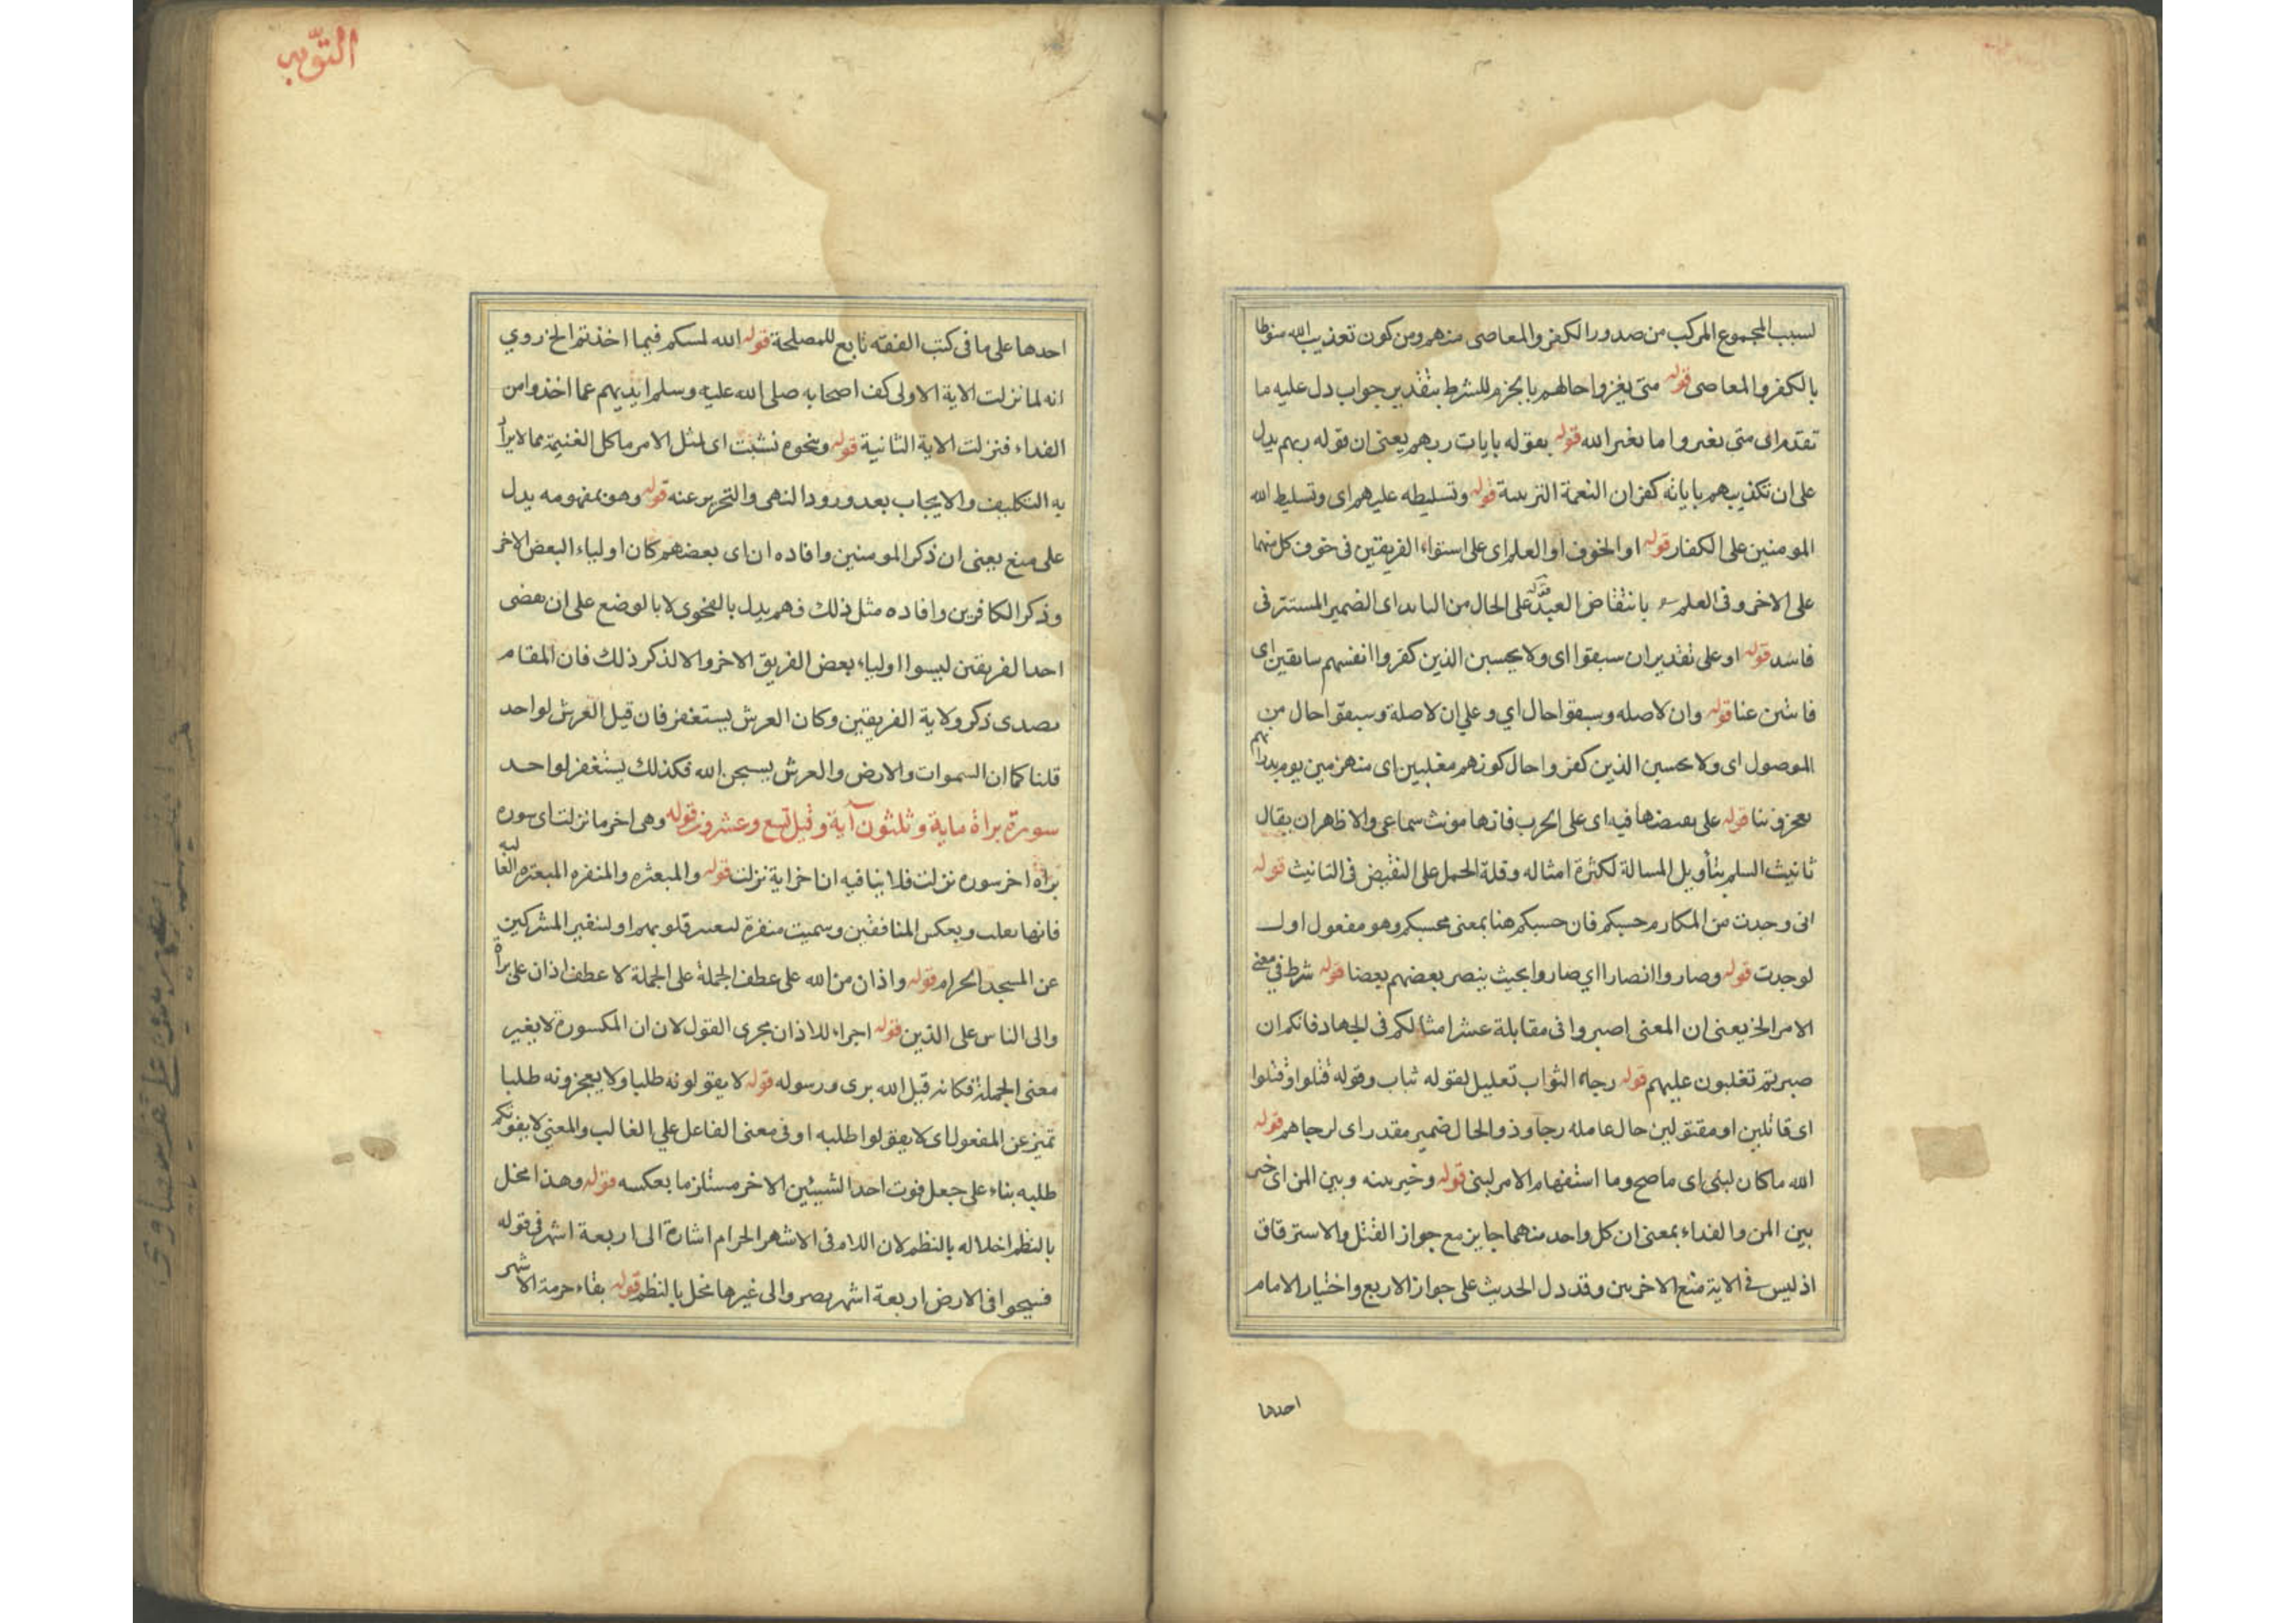 لسبب المجموع المركب من صدور الكفر والمعاصى منهم ومن كون تعذيب الله منوطا
بالكفر والمعاصى قوله متى يغيروا حالهم بالجزم للشرط بتقدير جواب دل عليه ما
تقدم اى متى يغيروا ما يغير الله قوله بقوله بايات ربهم يعنى ان قوله ربهم يدل
على ان تكذيبهم باياته كفران النعمة التربية قوله وتسليطه عليهم اى وتسليط الله
المومنين على الكفار قوله او الخوف او العلم اى على استواء الفريقين فى خوف كل منهما
على الاخر وفى العلم بانتقاض العهد على الحال من النابذ اى الضمير المستتر فى
فانبذ قوله او على تقدير ان سبقوا اى ولا يحسبن الذين كفروا انفسهم سابقين اى
فائتين عنا قوله وان لا صله وسبقوا حال اي وعلي ان لا صلة وسبقوا حال من
الموصول اى ولا يحسبن الذين كفروا حال كونهم مغلبين اى منهزمين يوم بدر انهم
يعجزوننا قوله على نقيضها فيه اى على الحرب فانها مونث سماعى والاظهر ان يقال
تانيث السلم بتأويل المسالة لكثرة امثاله وقلة الحمل على النقيض فى التانيث قوله
انى وجدت من المكارم حسبكم فان حسبكم هنا بمعنى محسبكم وهو مفعول اول
لوجدت قوله وصاروا انصارا اي صاروا بحيث ينصر بعضهم بعضا قوله شرط في معنى
الامر الخ يعنى ان المعنى اصبروا فى مقابلة عشر امثالكم فى الجهاد فانكم ان
صبرتم تغلبون عليهم قوله رجاء الثواب تعليل لقوله ثبات وقوله قتلوا وقتلوا
اى قاتلين او مقتولين حال عامله رجاء وذو الحال ضمير مقدر اى لرجاهم قوله
الله ما كان لبنى اى ما صح وما استفهام الامر لبنى قوله وخير بينه وبين المن اى خير
بين المن والفداء بمعنى ان كل واحد منهما جايز مع جواز القتل والاسترقاق
اذ ليس فى الاية منع الاخرين وقد دل الحديث على جواز الاربع واختيار الامام
احدها
التوبه
احدها على ما فى كتب الفقه تابع للمصلحة قوله الله لمسكم فيما اخذتم الخ روي
انه لما نزلت الاية الاولى كف اصحابه صلى الله عليه وسلم ايديهم عما اخذوا من
الفداء فنزلت الاية الثانية قوله ونحوه تشبث اى لمثل الامر ما كل الغنيمة مما لا يراد
به التكليف والايجاب بعد ورود النهى والتحريم عنه قوله وهو بمفهومه يدل
على منع يعنى ان ذكر المومنين وافاده ان اى بعضهم كان اولياء البعض الاخر
وذكر الكافرين وافاده مثل ذلك فهم يدل بالفحوى لا بالوضع على ان بعضى
احد الفريقين ليسوا اولياء بعض الفريق الاخر والا لذكر ذلك فان المقام
بصدى ذكر ولاية الفريقين وكان العرش يستغفر فان قيل العرش لواحد
قلنا كما ان السموات والارض والعرش يسبحن الله فكذلك يستغفر لواحد
سورة براة ماية وثلثون آية وقيل تسع وعشرون قوله وهى اخر ما نزلت اى سوره
براة اخر سوره نزلت فلا ينافيه ان اخر اية نزلت قوله والمبعثره والمنفره المبعثره الغالبه
فانها تعلب وبعكس المنافقين وسميت منفرة قلوبهم او لتنفير المشركين
عن المسجد الحرام قوله واذان من الله على عطف الجملة على الجملة لا عطف اذان على براة
والى الناس على الذين قوله اجراء للاذان مجرى القول لان ان المكسورة لا يغير
معنى الجملة فكانه قيل الله برى ورسوله قوله لا يفوتونه طلبا ولا يعجزونه طلبا
تميز عن المفعول اى لا يفوتوا طلبه او فى معنى الفاعل علي الغالب والمعنى لا يفوتكم
طلبه بناء على جعل فوت احد الشيئين الاخر مستلزما بعكسه قوله وهذا مخل
بالنظم اخلاله بالنظم لان اللام فى الاشهر الحرام اشارة الى اربعة اشهر فى قوله
فسيحوا فى الارض اربعة اشهر بصرو الى غيرها مخل بالنظم قوله بقاء حرمة الاشهر